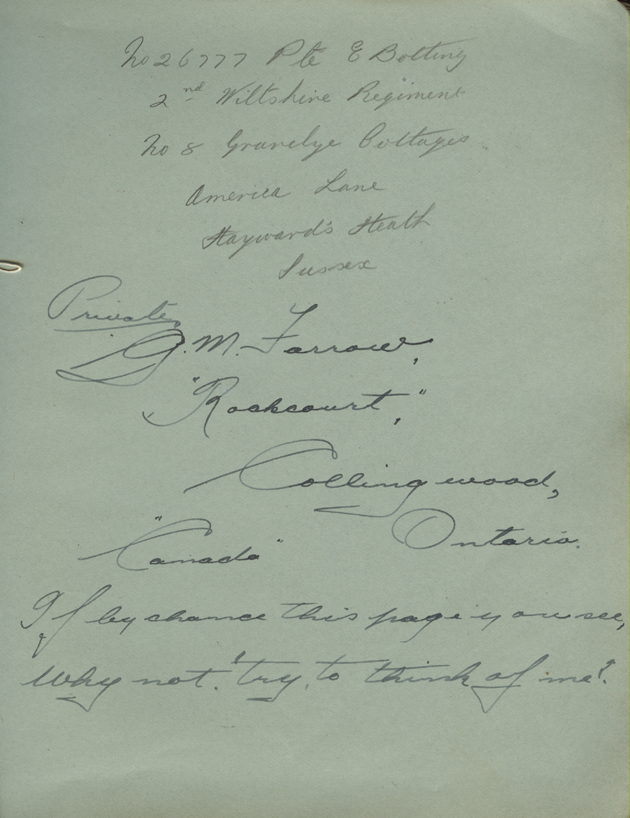 No 26777 Pte E Botting
2nd Wiltshire Regiment
No 8 Gravelye Cottages
America Lane
Hayward's Heath
Sussex
Private
G. M. Farrow,
"Rockcourt,"
Collingwood,
Ontario.
"Canada"
If by chance this page you see,
Why not "try" to think of me?